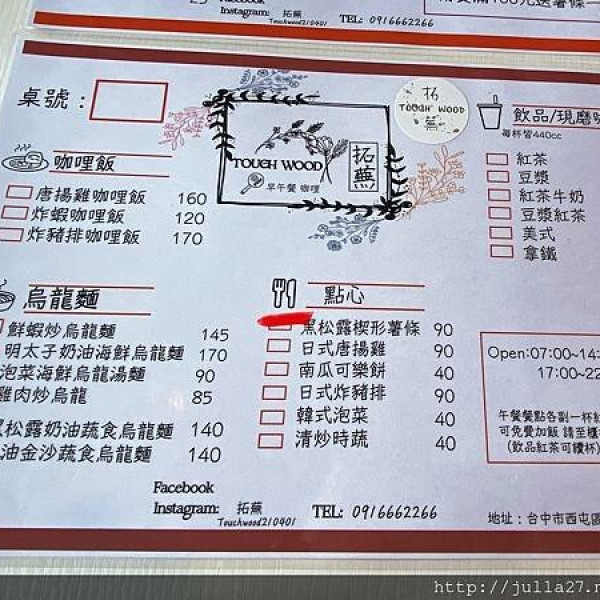 Facebook
Instagram: 拓蕪
Touchwood210401
TEL: 0916662266
桌號：
拓
TOUGH WOOD
蕪
TOUGH WOOD
拓蕪
早午餐 咖哩
飲品/現磨咖
每杯皆440cc
紅茶
豆漿
紅茶牛奶
豆漿紅茶
美式
拿鐵
咖哩飯
唐揚雞咖哩飯 160
炸蝦咖哩飯 120
炸豬排咖哩飯 170
烏龍麵
鮮蝦炒烏龍麵 145
明太子奶油海鮮烏龍麵 170
泡菜海鮮烏龍湯麵 90
雞肉炒烏龍 85
松露奶油蔬食烏龍麵 140
油金沙蔬食烏龍麵 140
點心
黑松露楔形薯條 90
日式唐揚雞 90
南瓜可樂餅 40
日式炸豬排 90
韓式泡菜 40
清炒時蔬 40
Open:07:00~14:
17:00~22
午餐餐點各副一杯紅
可免費加飯 請至櫃
(飲品紅茶可續杯)
Facebook
Instagram: 拓蕪
Touchwood210401
TEL: 0916662266
地址：台中市西屯區
http://julla27.